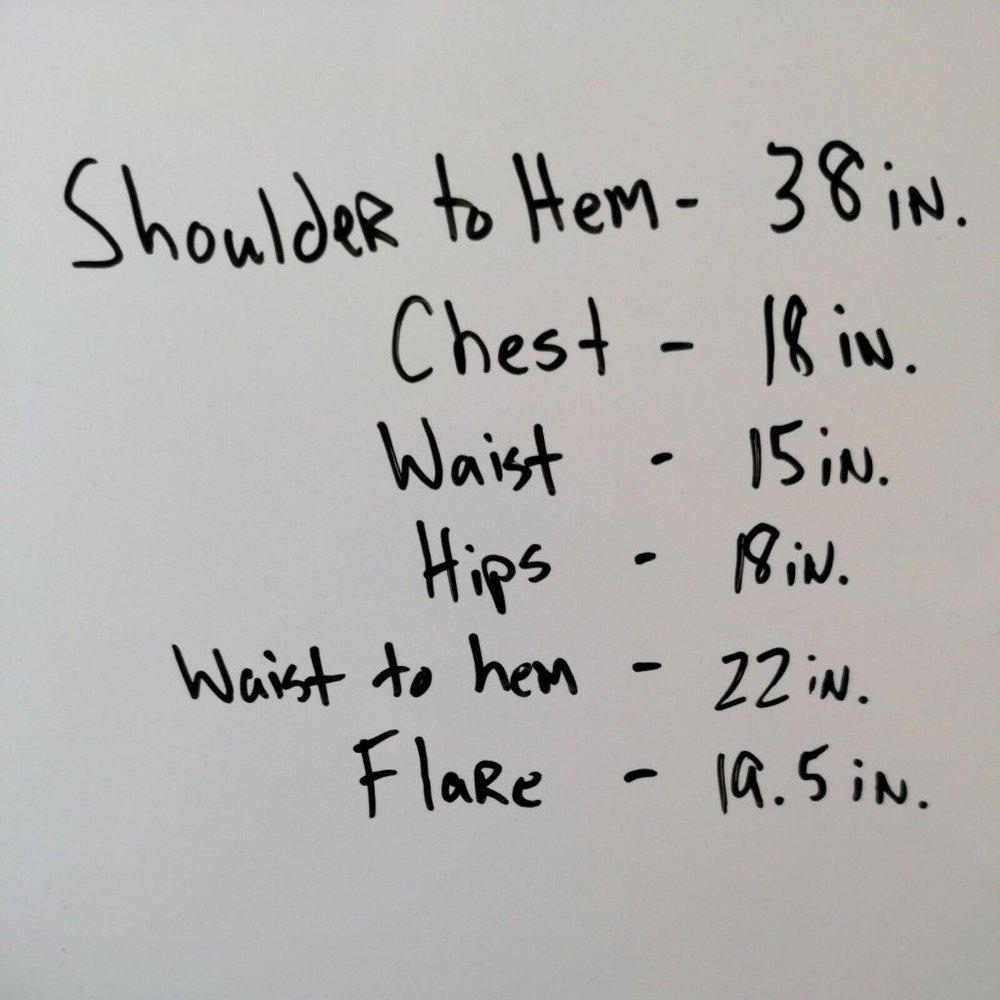 Shoulder to Hem - 38 in.
Chest - 18 in.
Waist - 15 in.
Hips - 18 in.
Waist to hem - 22 in.
Flare - 19.5 in.